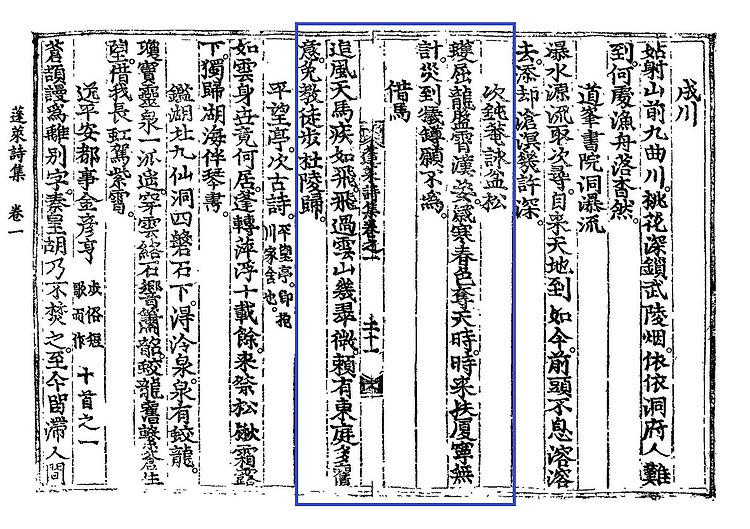 成川
姑射山前九曲川。桃花深鎖武陵烟。依依洞府人難
到。何處漁舟落杳然。
道峯書院洞瀑流
瀑水源流取次尋。自来天地到如今。前頭不息溶溶
去。添却滄溟幾許深。
次鈍菴詠盆松
蠖屈龍盤霄漢姿。感寒春色奪天時。時来扶厦寧無
計。災到犧罇願不爲。
借馬
蓬莱詩集卷之一 二十一
追風天馬疾如飛。飛過雲山幾翠微。賴有東庭多舊
意。免教徒步杜陵歸。
平望亭。次古詩。平望亭。即抱川家舍也。
如雲身世竟何居。蓬轉萍浮十載餘。来祭松楸霜露
下。獨歸湖海伴琴書。
鑑湖址九仙洞四磐石下。得冷泉。泉有蛟龍。
瓊寶靈泉一派遥。穿雲絡石響簫韶。蛟龍舊蟄蒼生
望。借我長虹駕紫霄。
送平安都事金彦亨 俗短歌而作 十首之一
蒼頡謾爲離別字。秦皇胡乃不焚之。至今留滯人間
蓬萊詩集 卷一